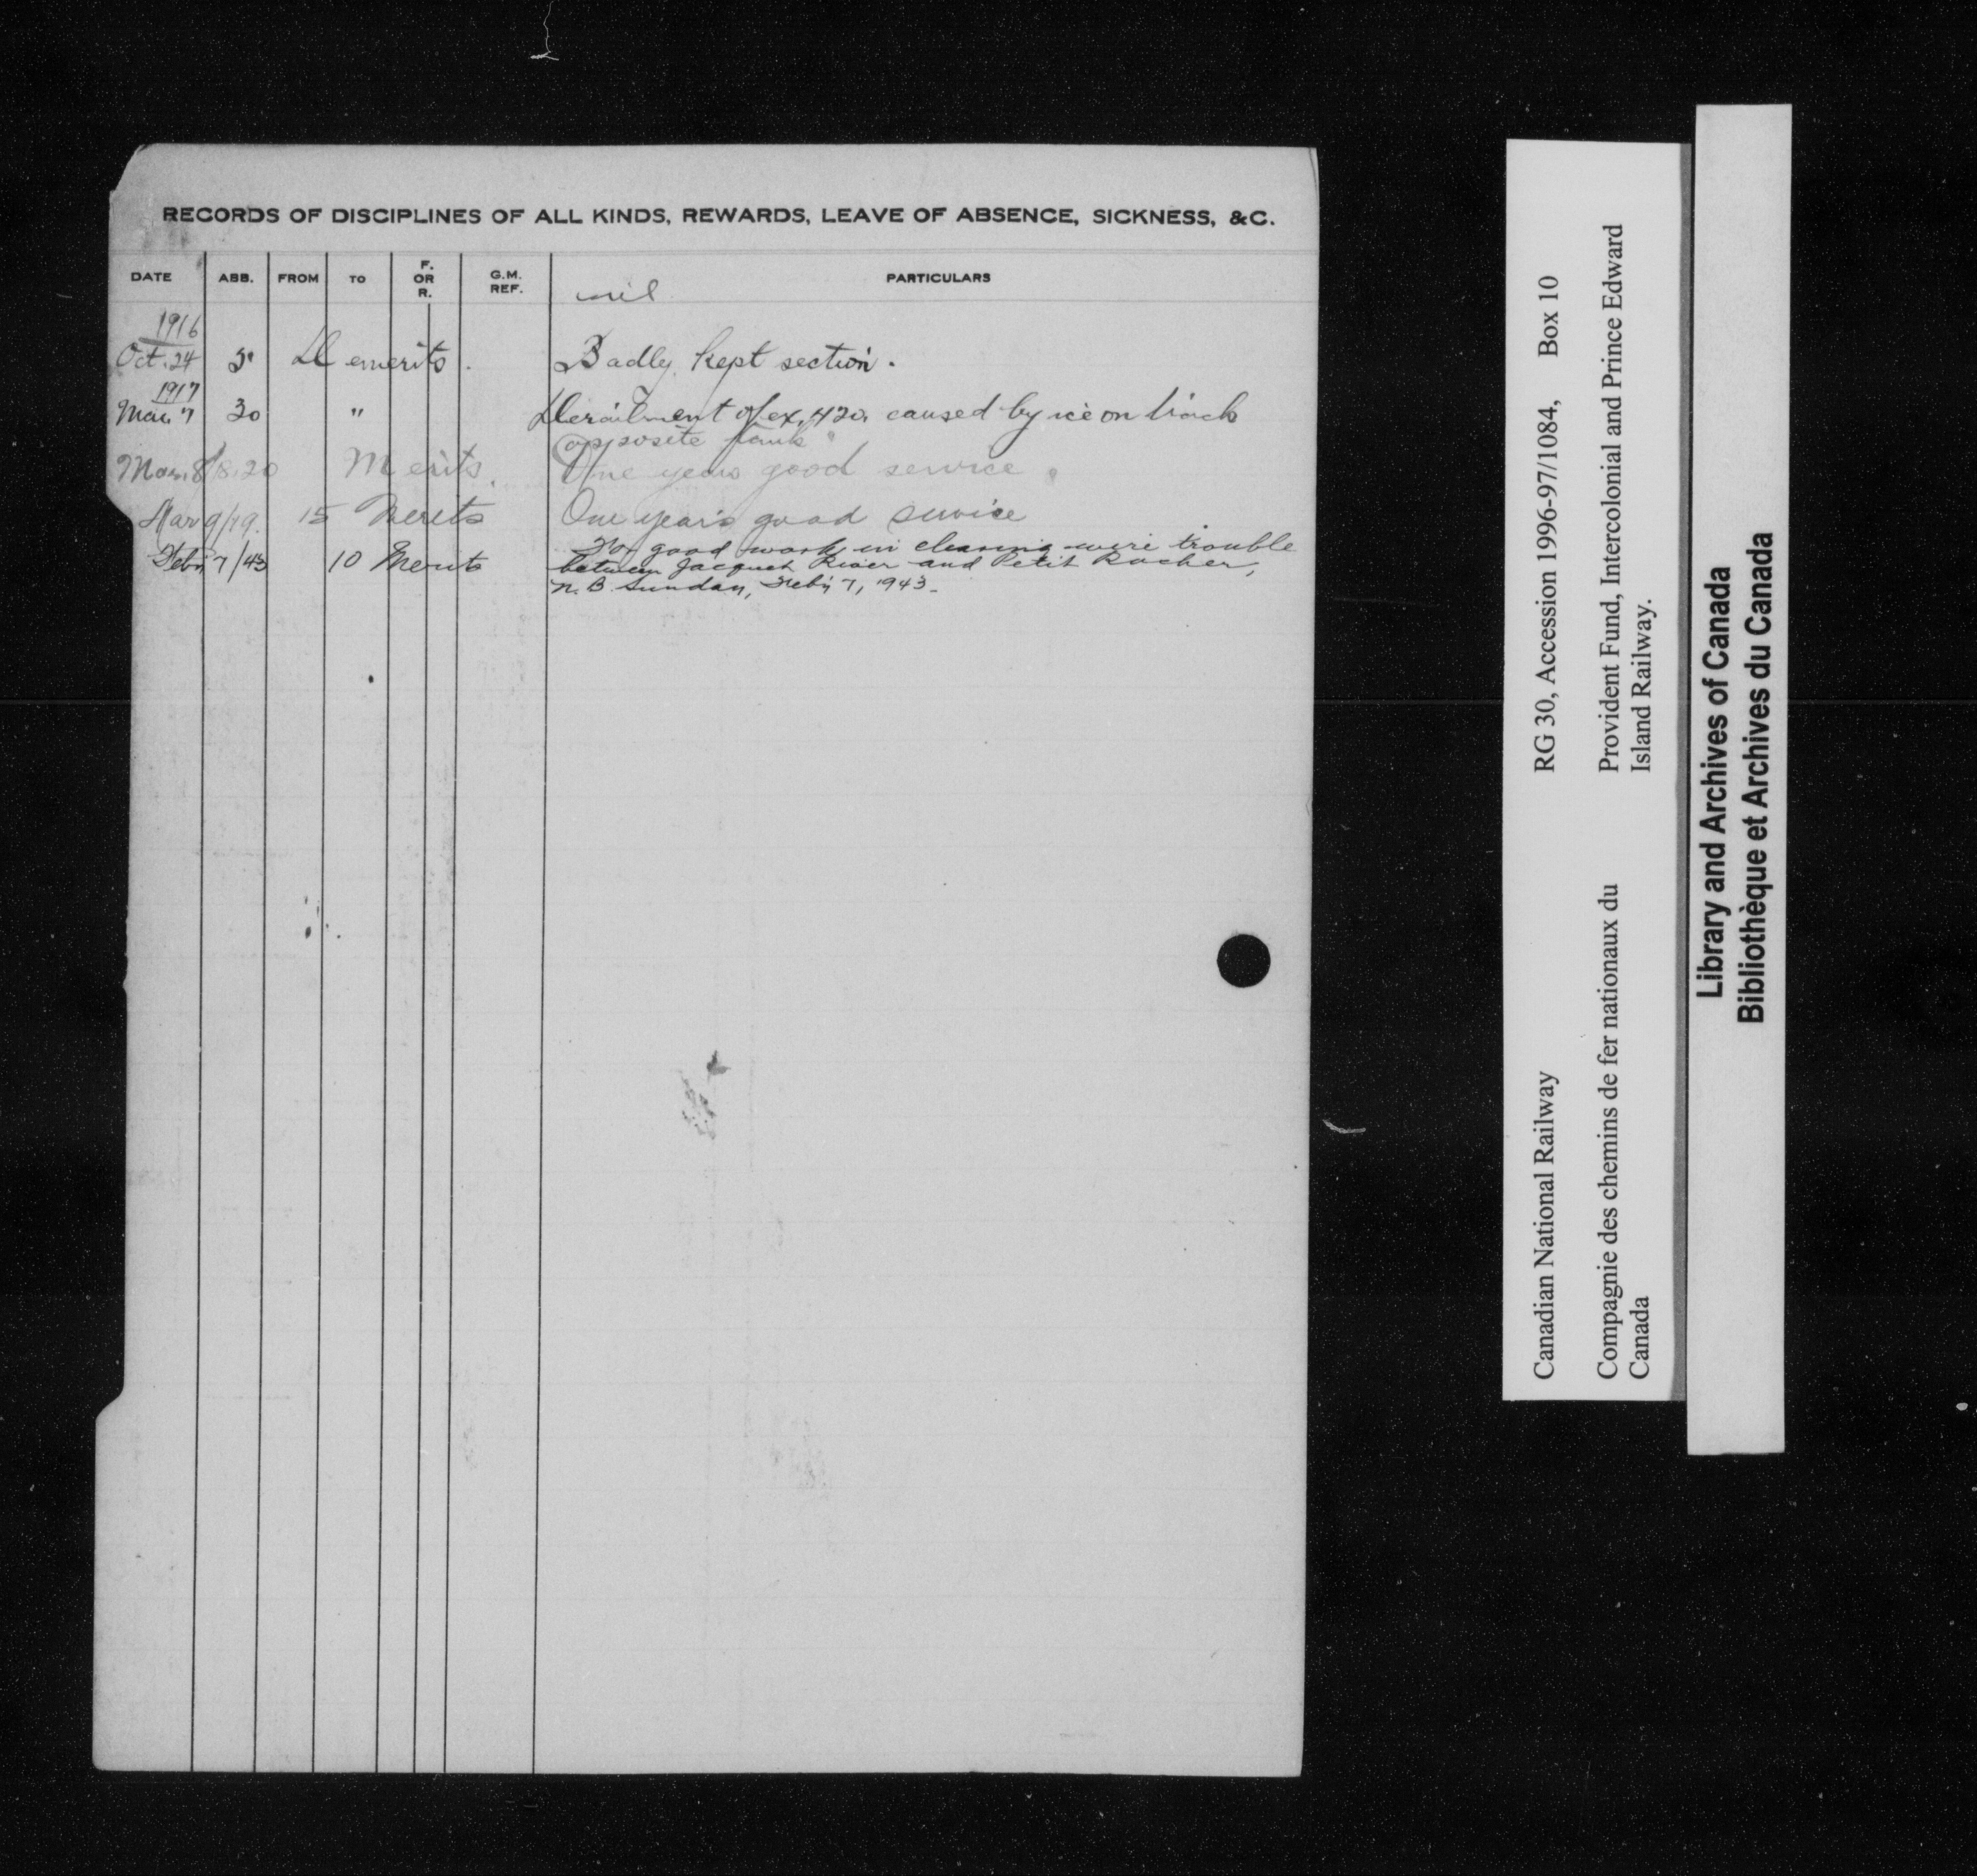 RECORDS OF DISCIPLINES OF ALL KINDS, REWARDS, LEAVE OF ABSENCE, SICKNESS, &C.
DATE ABB. FROM TO F. OR R. G.M. REF. PARTICULARS
nil
1916
Oct. 24 5 Demerits. Badly kept section.
1917
Mar. 7 30 " Derailment of ex. 420. caused by ice on track
opposite tank
Mar. 8/18. 20 Merits. One years good service.
Mar 9/19. 15 Merits One year's good service
Feby 7/43 10 Merits For good work in clearing wire trouble
between Jacquet River and Petit Rocher,
N. B. Sunday, Feb'y 7, 1943.
Canadian National Railway RG 30, Accession 1996-97/1084, Box 10
Compagnie des chemins de fer nationaux du Provident Fund, Intercolonial and Prince Edward
Canada Island Railway.
Library and Archives of Canada
Bibliothèque et Archives du Canada